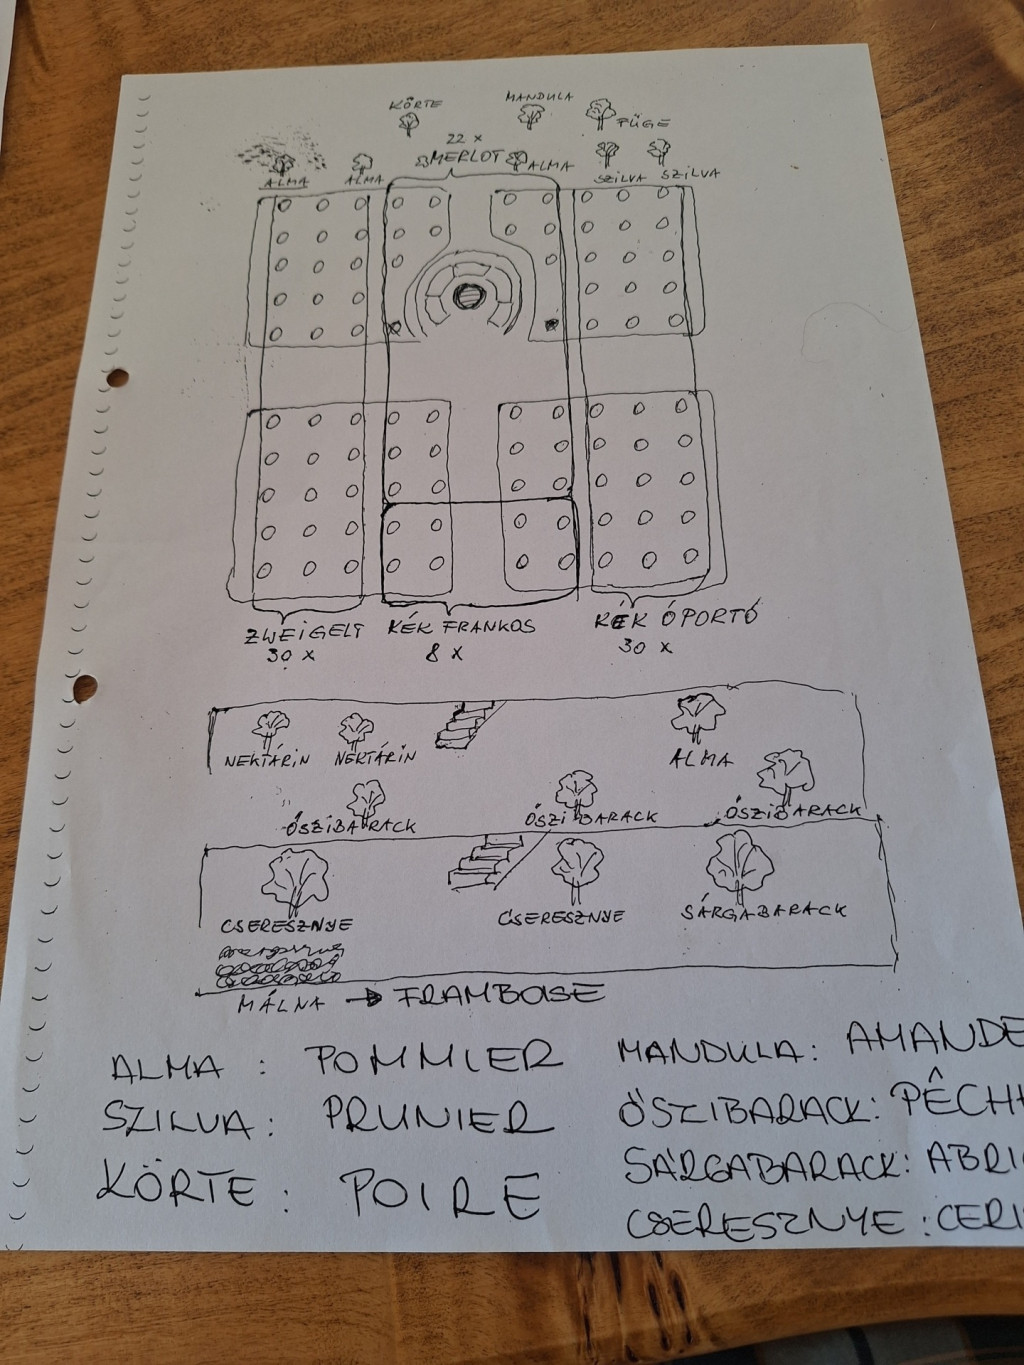 KÖRTE
MANDULA
FÜGE
22 x
MERLOT
ALMA
ALMA
ALMA
SZILVA
SZILVA
ZWEIGELT
30 x
KÉK FRANKOS
8 x
KÉK ÓPORTÓ
30 x
NEKTÁRIN
NEKTÁRIN
ALMA
ŐSZIBARACK
ŐSZIBARACK
ŐSZIBARACK
CSERESZNYE
CSERESZNYE
SÁRGABARACK
MÁLNA → FRAMBOISE
ALMA : POMMIER
SZILVA : PRUNIER
KÖRTE : POIRE
MANDULA : AMANDE
ŐSZIBARACK : PÊCH
SÁRGABARACK : ABRI
CSERESZNYE : CERI